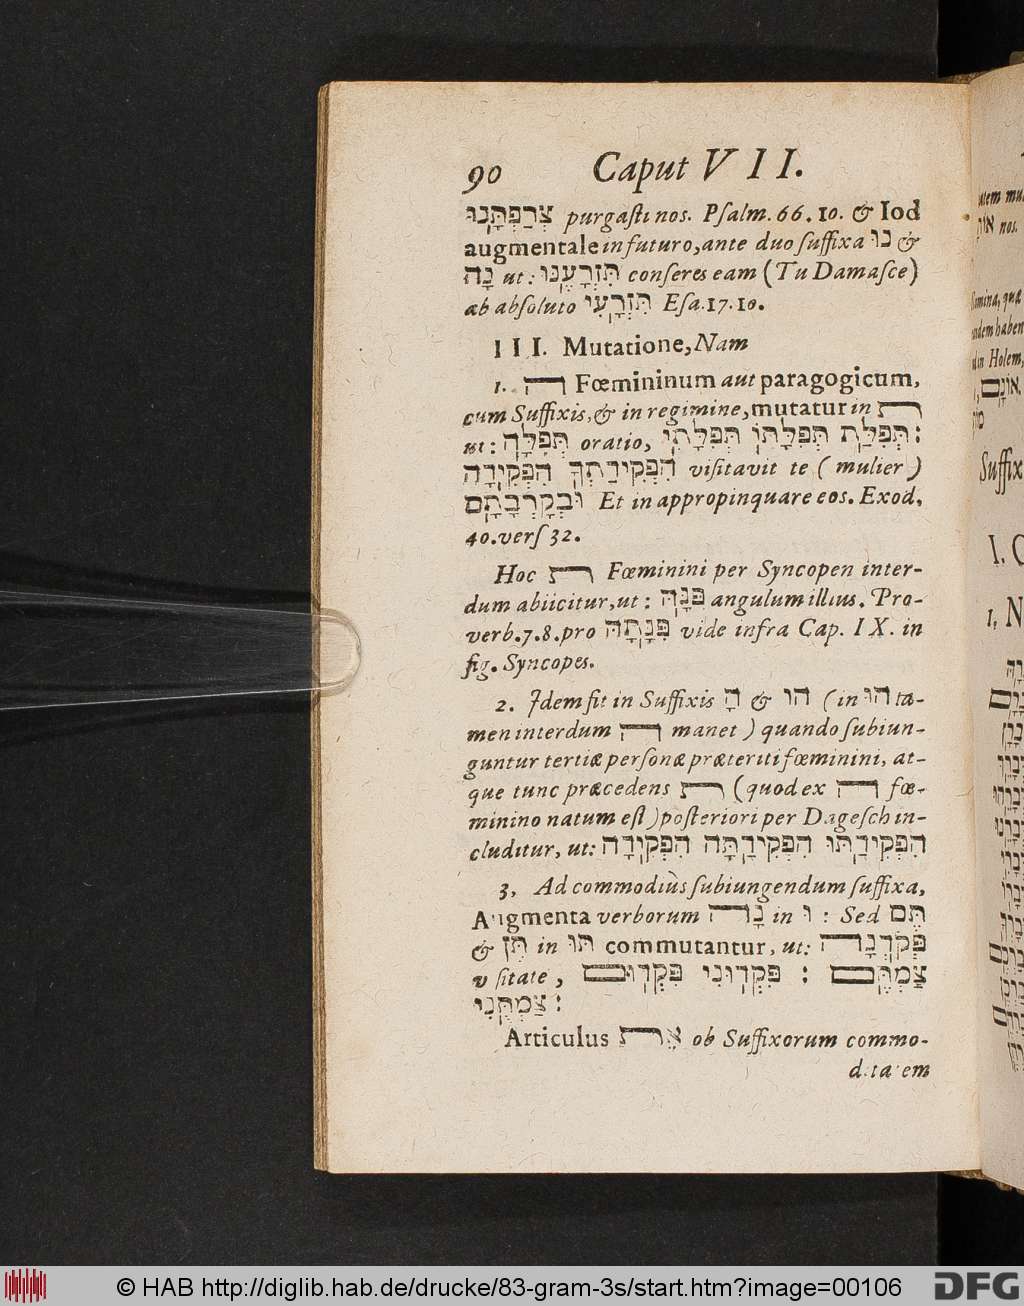 90 Caput VII.
צְרַפְתָּנוּ purgaſti nos. Pſalm. 66. 10. & Iod
augmentale in futuro, ante duo ſuffixa נוּ &
נָה ut: תִּזְרָעֶנּוּ conſeres eam (Tu Damaſce)
ab abſoluto תִּזְרָעִי Eſa. 17. 10.
III. Mutatione, Nam
1. ה Fœmininum aut paragogicum,
cum Suffixis, & in regimine, mutatur in ת
ut: תְּפִלָּה oratio, תְּפִלַּת תְּפִלָּתוֹ תְּפִלָּתִי:
הִפְקִידָה הִפְקִידַתְךָ viſitavit te (mulier)
וּבְקָרְבָתָם Et in appropinquare eos. Exod,
40. verſ 32.
Hoc ת Fœminini per Syncopen inter-
dum abiicitur, ut: פִּנָּהּ angulum illius. Pro-
verb. 7. 8. pro פִּנָּתָהּ vide infra Cap. IX. in
fig. Syncopes.
2. Idem fit in Suffixis הָ & הוּ (in הוּ ta-
men interdum ה manet) quando ſubiun-
guntur tertiæ perſonæ præteriti fœminini, at-
que tunc præcedens ת (quod ex ה fœ-
minino natum eſt) poſteriori per Dageſch in-
cluditur, ut: הִפְקִידָה הִפְקִידַתָּה הִפְקִידַתּוּ
3, Ad commodiùs ſubiungendum ſuffixa,
Augmenta verborum נָה in וּ : Sed תֶּם
& תֶּן in תּוּ commutantur, ut: פְּקֹדְנָה
uſitate, פִּקְדוּם פִּקְדוּנִי : צַמְתֶּם
צַמְתֻּנִי:
Articulus אֶת ob Suffixorum commo-
ditatem
© HAB http://diglib.hab.de/drucke/83-gram-3s/start.htm?image=00106
DFG